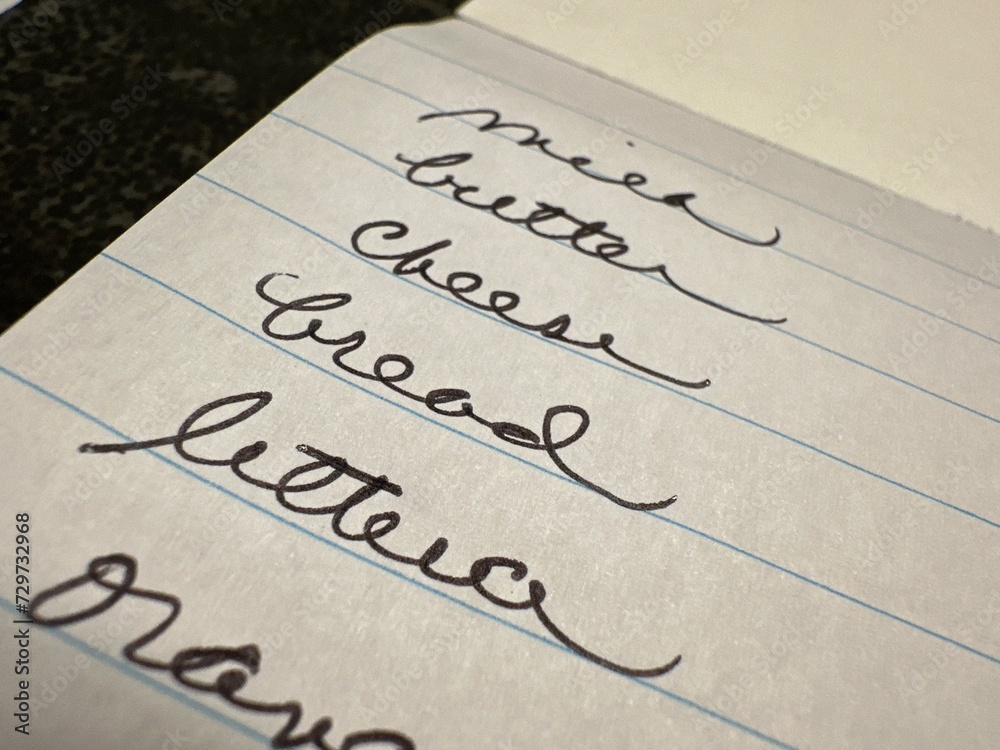 butter
cheese
bread
lettuce
Adobe Stock | #729732968